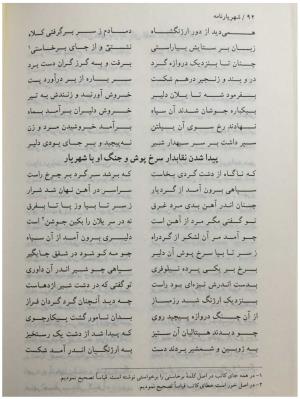 ۹۲ / شهریارنامه
همی‌دید از دور ارژنگشاه دمادم ز سر برگرفتی کلاه
زبان بر ستایش بیاراستی نشستی و از جای برخاستی۱
چنان تا بنزدیک دروازه گرد برفت و به گرز گران دست برد
در و بند و زنجیر درهم شکست سر باره از پر درآورد پست
بفرمود شه تا یلان دلیر خروش آورند و زنندش به تیر
بیکباره جوشان شدند آن سپاه خروش دلیران برآمد بماه
نهادند رخ سوی آن پیلتن برآمد خروشیدن مرد و زن
سپر داشت بر سر سپهدار شیر نه‌پیچید و بر جای بودی دلیر
پیدا شدن نقابدار سرخ پوش و جنگ او با شهریار
که ناگاه از دشت گردی بخاست که برشد سر گرد بر چرخ راست
سپاهی برون آمد از گرد یار سراسر در آهن نهان شد شرار
چنان اندر آهن بدی مرد غرق ز سر تا بپا وز پا تا بفرق
تو گفتی مگر مرد از آهن است نه در سر یلان را بکین جوشن۲ است
چو آمد مر آن لشکر از گردراه دلیری برون آمد از آن سپاه
ز سر تا بپا سرخ پوش دلیر چو مه کو شود در شفق جایگیر
برخ بر یکی پرده نیلوفری سیاهی چو شیر اندر آن داوری
بدست اندرش نیزه‌ای بود راست تو گفتی که در دشت شیر اژدهاست
بنزدیک ارژنگ شد رزمساز چه دید آنچنان گرد گردان فراز
از آن جنگ دروازه پیچید روی بدان نامور گشت پیکارجوی
چو دیدند هیتالیان آن ستیز که پیدا شد از دشت یک رستخیز
به ژوپین و شمشیر بردند دست به ارژنگیان اندر آمد شکست
۱- در همه جای کاتب در اصل کلمهٔ برخاستی را برخواستی نوشته است. قیاساً تصحیح نمودیم.
۲- در اصل خور است، خطای کاتب. قیاساً تصحیح نمودیم.